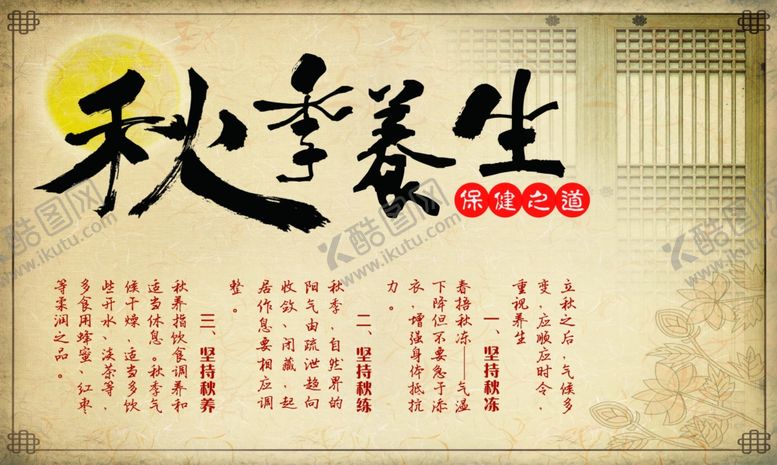 秋季養生
保健之道
立秋之后，气候多
变，应顺应时令，
重视养生
一、坚持秋冻
春捂秋冻——气温
下降但不要急于添
衣，增强身体抵抗
力。
二、坚持秋练
秋季，自然界的
阳气由疏泄趋向
收敛、闭藏，起
居作息要相应调
整。
三、坚持秋养
秋养指饮食调养和
适当休息。秋季气
候干燥，适当多饮
些开水、淡茶等，
多食用蜂蜜、红枣
等柔润之品。
酷图网
www.ikutu.com